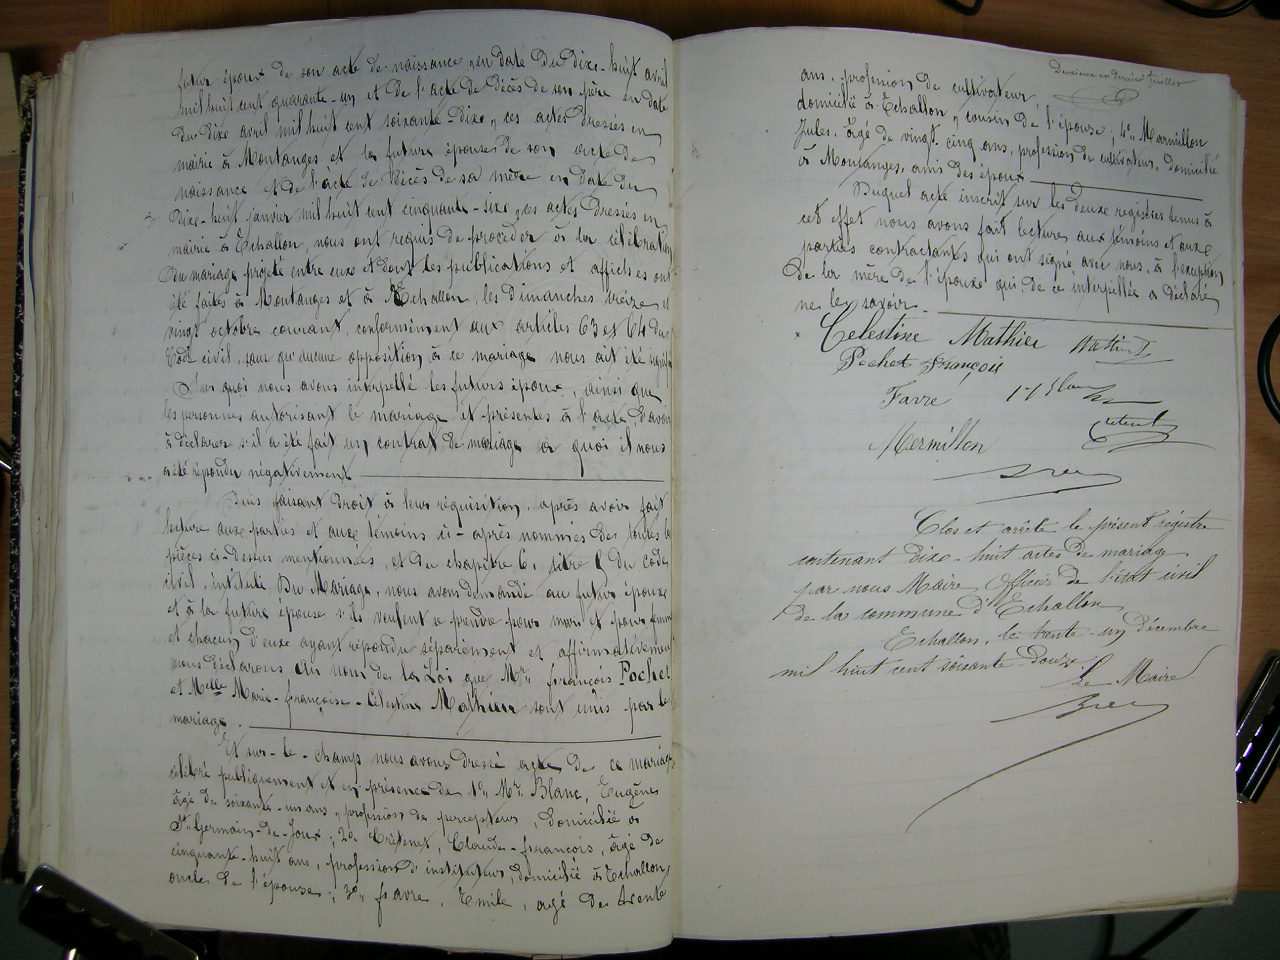 futur époux de son acte de naissance en date du dix-huit avril
mil huit cent quarante-un et de l'acte de décès de son père en date
du dix avril mil huit cent soixante-dix, ces actes dressés en
mairie à Montanges et la future épouse de son acte de
naissance et de l'acte de décès de sa mère en date du
dix-huit janvier mil huit cent cinquante-six, ces actes dressés en
mairie à Echallon, nous ont requis de procéder à la célébration
du mariage projeté entre eux et dont les publications et affiches ont
été faites à Montanges et à Echallon, les dimanches treize et
vingt octobre courant, conformément aux articles 63 et 64 du
Code civil, sans qu'aucune opposition à ce mariage nous ait été
Sur quoi nous avons interpellé les futurs époux, ainsi que
les personnes autorisant le mariage et présentes à l'acte, d'avoir
à déclarer s'il a été fait un contrat de mariage à quoi il nous
a été répondu négativement
Puis faisant droit à leur réquisition, après avoir fait
lecture aux parties et aux témoins ci-après nommés de toutes les
pièces ci-dessus mentionnées, et du chapitre 6, titre 5 du code
civil, intitulé Du Mariage, nous avons demandé au futur époux
et à la future épouse s'ils veulent se prendre pour mari et pour femme
et chacun d'eux ayant répondu séparément et affirmativement
nous déclarons Au nom de la Loi que Mr. François Pochet
et Melle Marie-Françoise-Célestine Mathieu sont unis par le
mariage.
Et sur-le-champ nous avons dressé acte de ce mariage
célébré publiquement et en présence de 1° Mr. Blanc, Eugène
âgé de soixante-un ans, profession de percepteur, domicilié à
St Germain-de-Joux; 2° Crétenet, Claude-François, âgé de
cinquante-huit ans, profession d'instituteur, domicilié à Echallon,
oncle de l'épouse; 3°, Favre, Emile, âgé de trente
Deuxième et dernier feuillet
ans, profession de cultivateur
domicilié à Echallon, cousin de l'épouse; 4° Marmillon
Jules, âgé de vingt-cinq ans, profession de cultivateur, domicilié
à Montanges, amis des époux
Duquel acte inscrit sur les deux registres tenus à
cet effet nous avons fait lecture aux témoins et aux
parties contractantes qui ont signé avec nous, à l'exception
de la mère de l'époux qui de ce interpellée a déclaré
ne le savoir.
Celestine Mathieu
Pochet François
Favre
Mermillon
Clos et arrêté le présent registre
contenant dix-huit actes de mariage
par nous Maire Officier de l'état civil
de la commune d'Echallon
Echallon, le trente-un décembre
mil huit cent soixante-douze
Le Maire